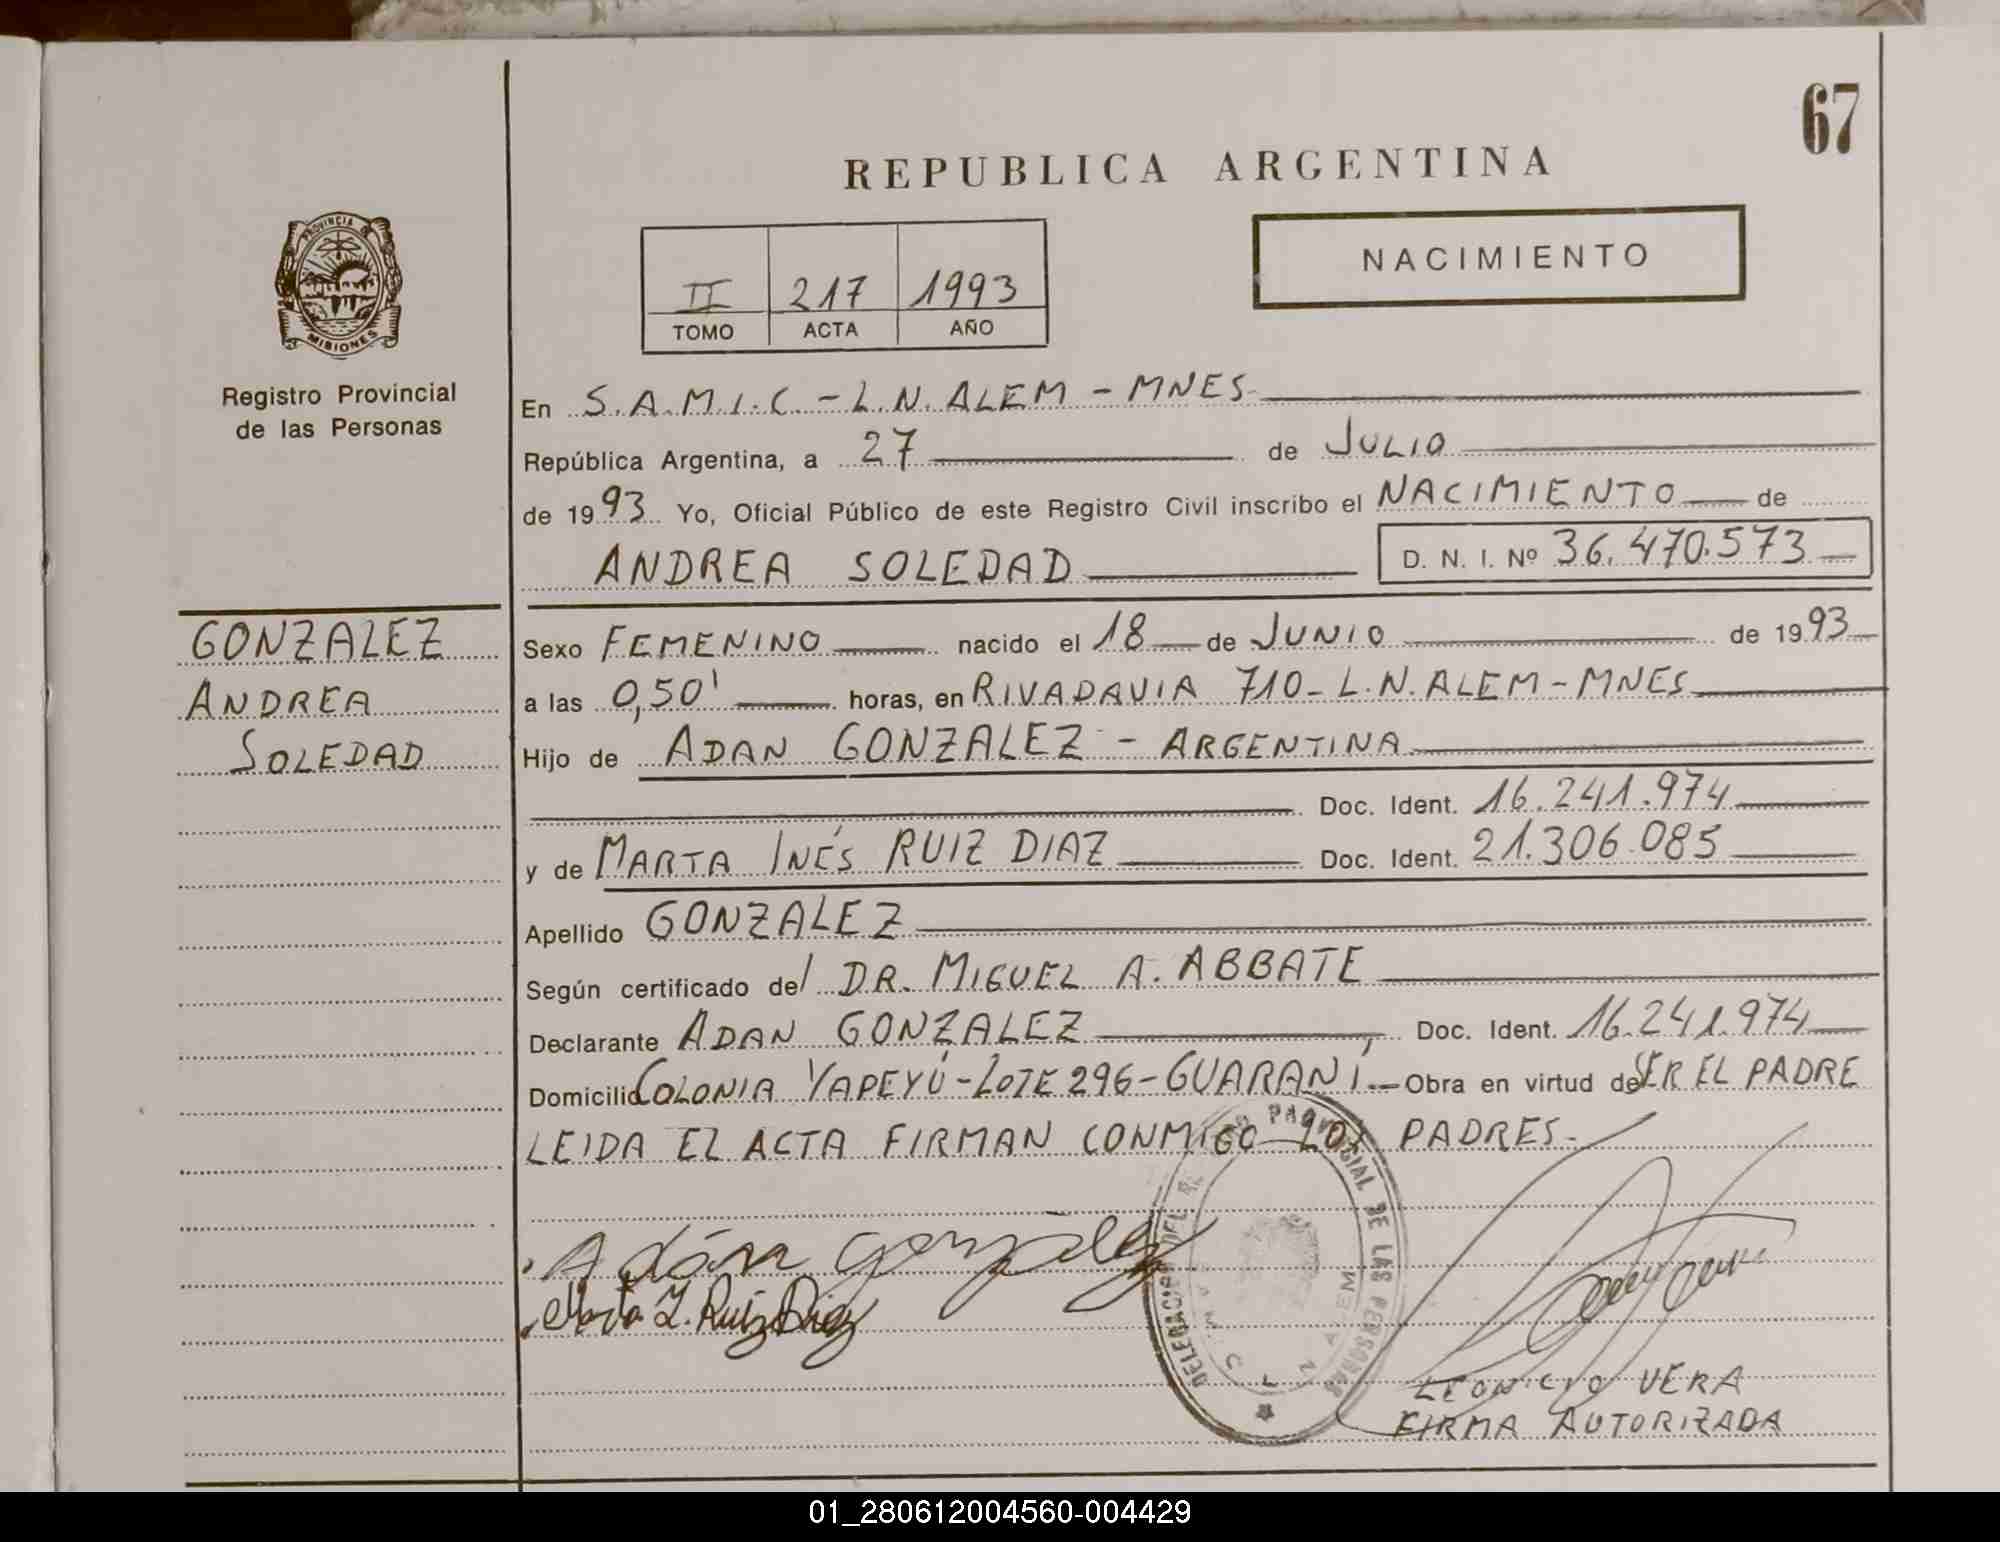 67
REPUBLICA ARGENTINA
PROVINCIA DE
MISIONES
Registro Provincial
de las Personas
II 217 1993
TOMO ACTA AÑO
NACIMIENTO
En S.A.M.I.C. - L.N. ALEM - MNES
República Argentina, a 27 de JULIO
de 1993 Yo, Oficial Público de este Registro Civil inscribo el NACIMIENTO de
ANDREA SOLEDAD D. N. I. Nº 36.470.573
GONZALEZ
ANDREA
SOLEDAD
Sexo FEMENINO nacido el 18 de JUNIO de 1993
a las 0,50' horas, en RIVADAVIA 710 - L.N. ALEM - MNES
Hijo de ADAN GONZALEZ - ARGENTINA
Doc. Ident. 16.241.974
y de MARTA INÉS RUIZ DIAZ Doc. Ident. 21.306.085
Apellido GONZALEZ
Según certificado del DR. MIGUEL A. ABBATE
Declarante ADAN GONZALEZ Doc. Ident. 16.241.974
Domicilio COLONIA YAPEYÚ - LOTE 296 - GUARANÍ.- Obra en virtud de SER EL PADRE
LEIDA EL ACTA FIRMAN CONMIGO LOS PADRES.-
Adán González
Marta I. Ruiz Diaz
DELEGACION DEL PROVINCIAL DE LAS PERSONAS
LEONCIO VERA
FIRMA AUTORIZADA
01_280612004560-004429